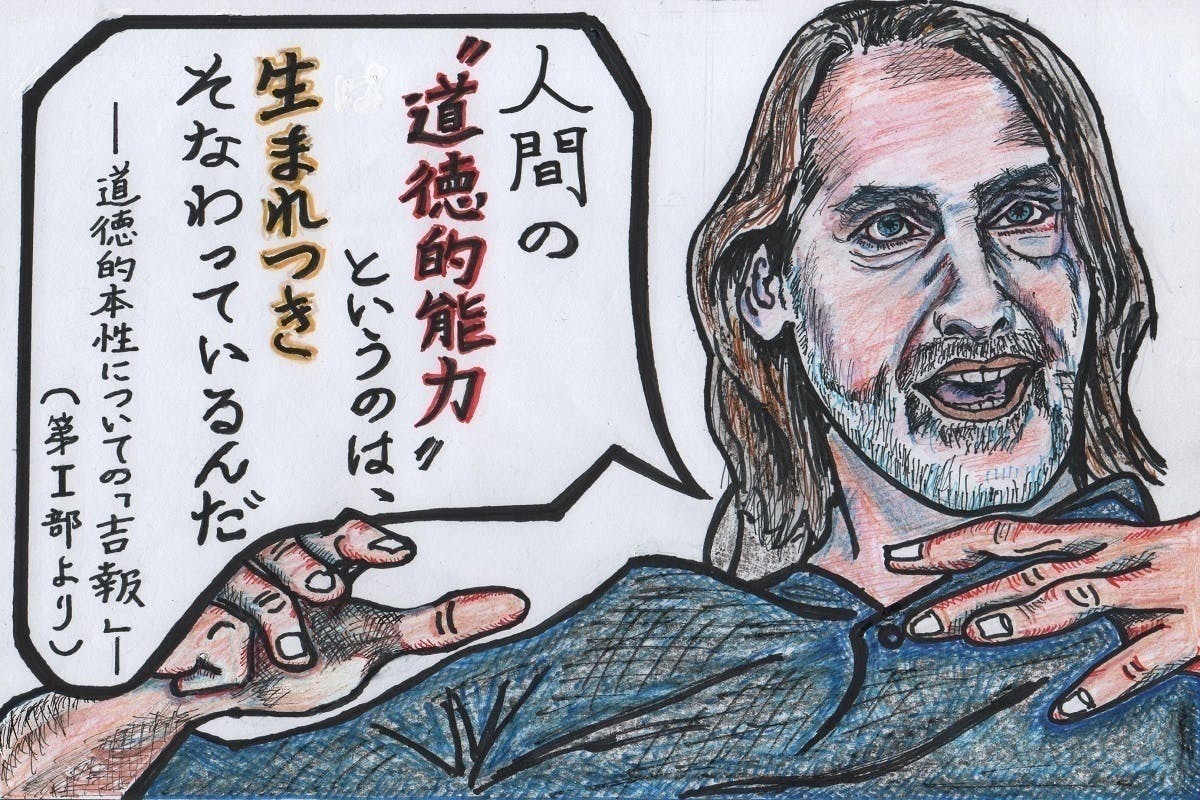 人間の
〝道徳的能力〟
というのは、
生まれつき
そなわっているんだ
―道徳的本性についての「吉報」―
(第Ⅰ部より)